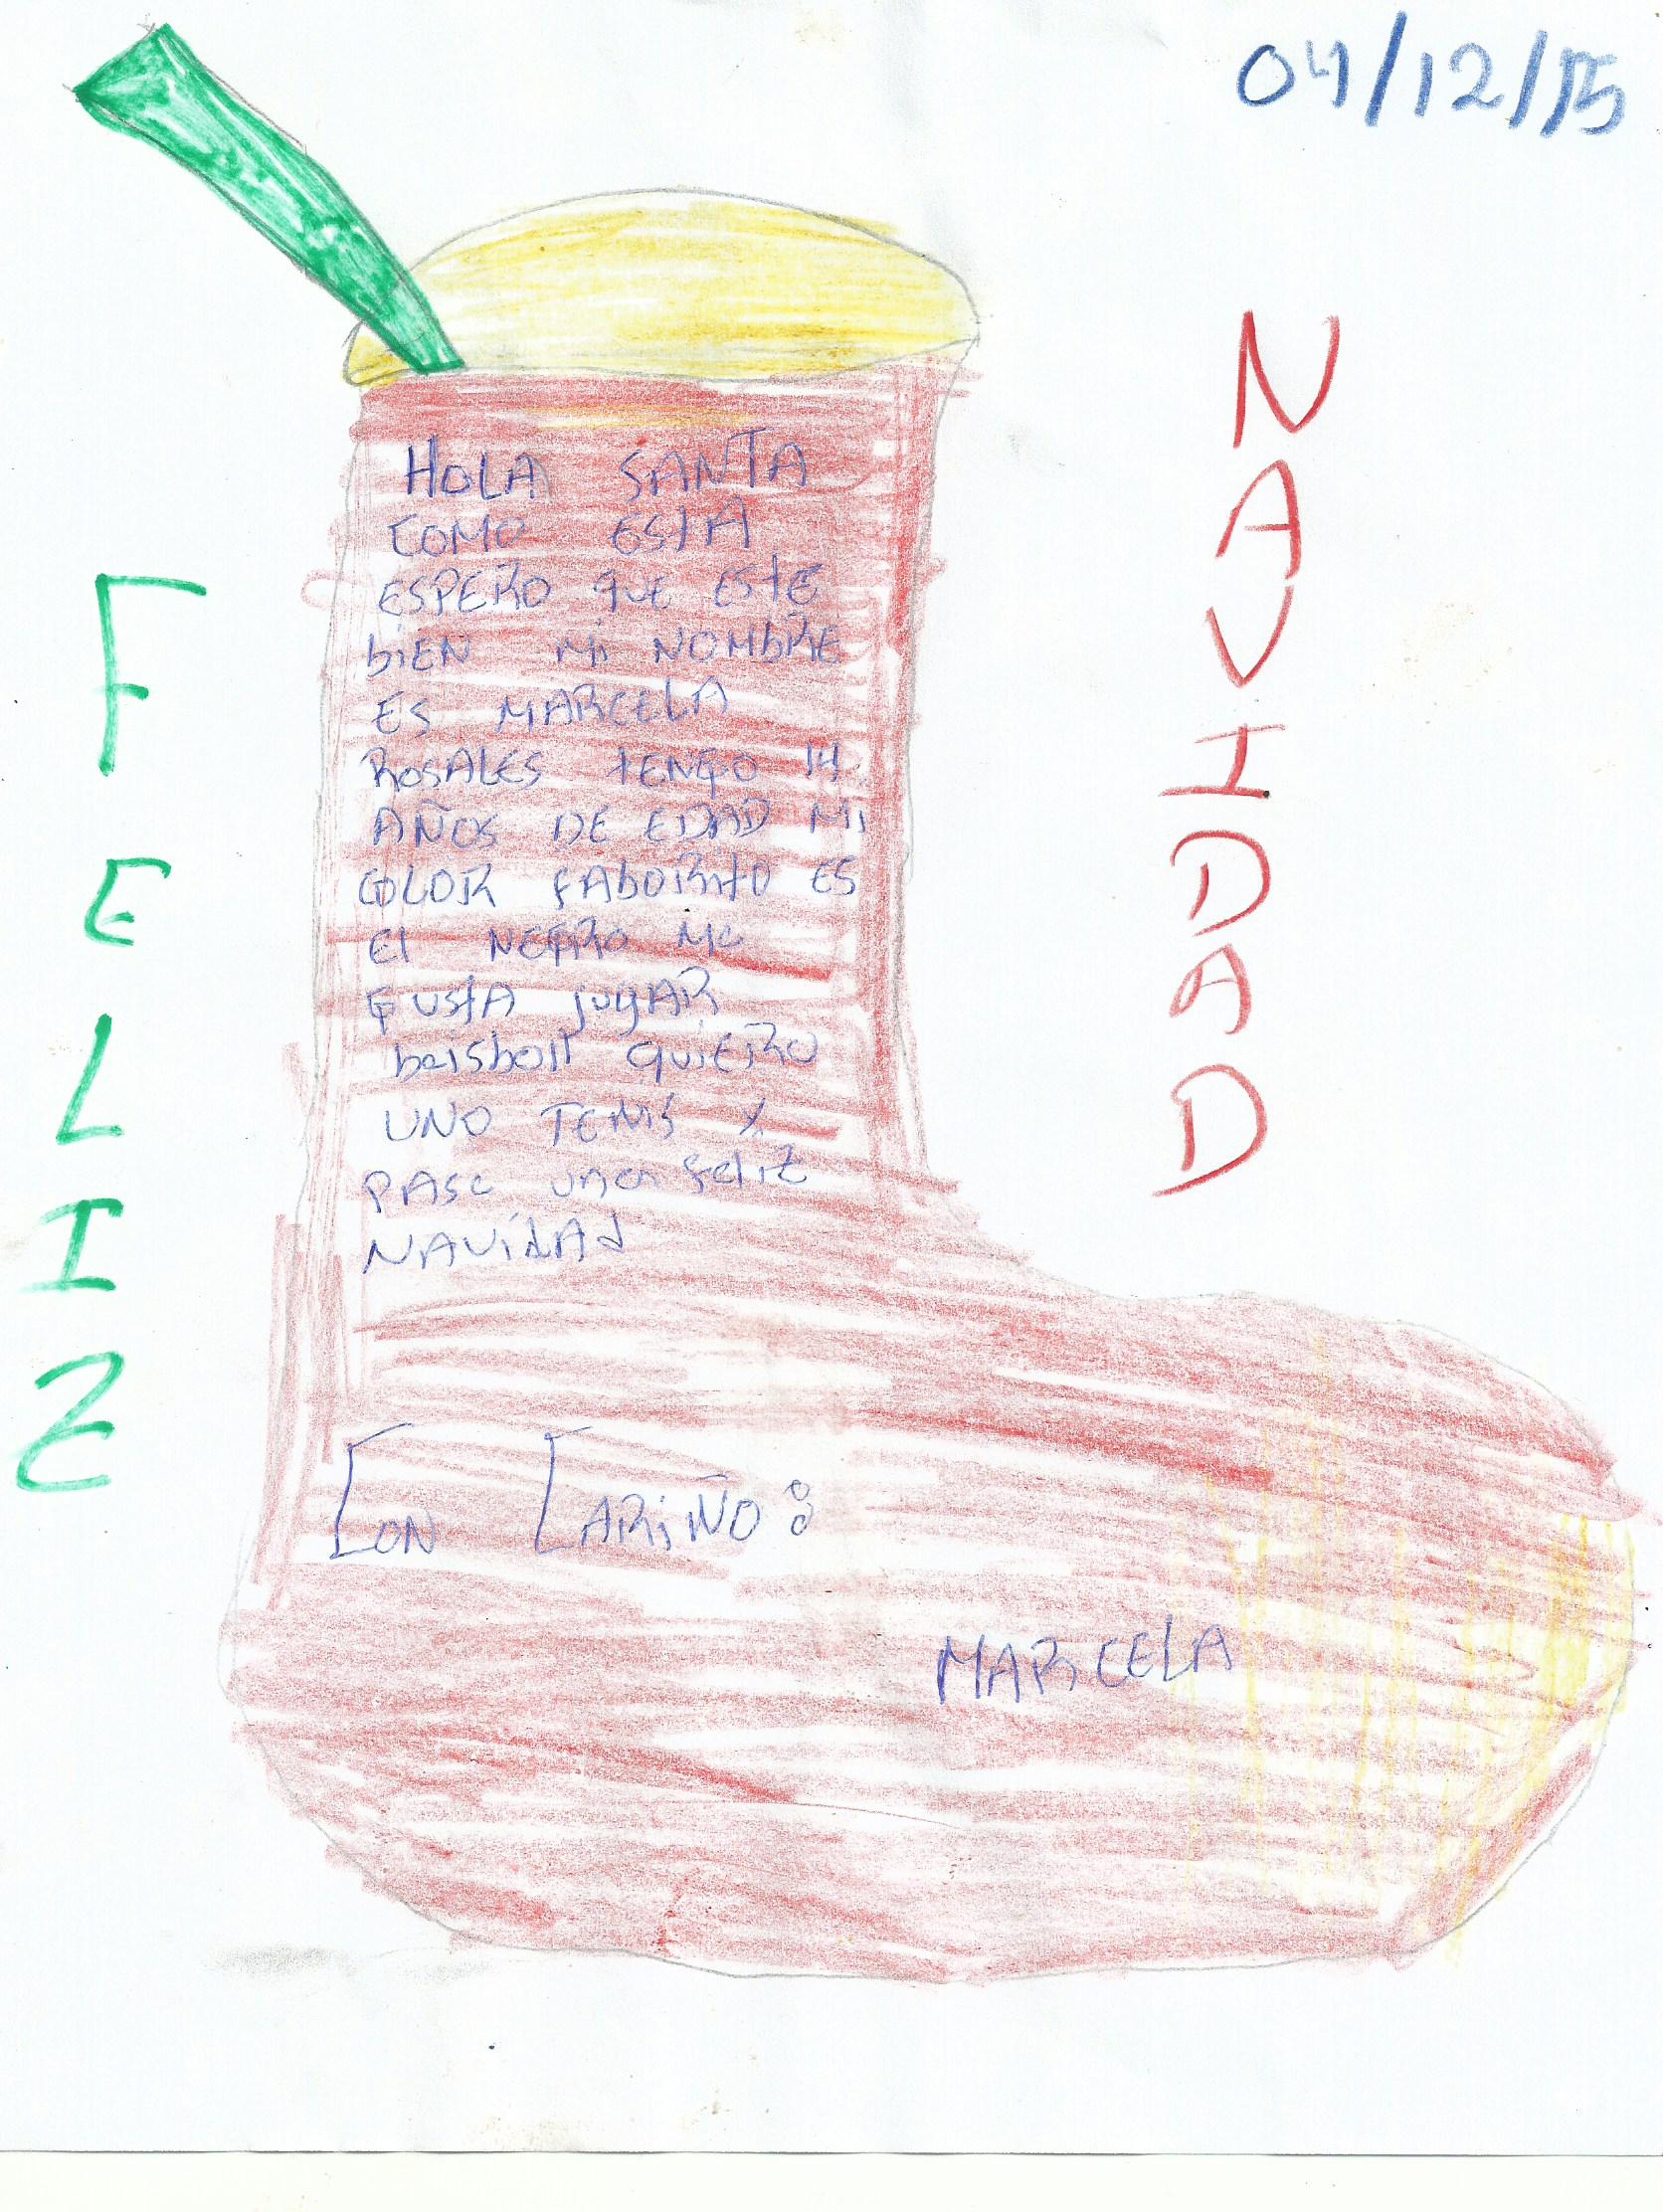 04/12/15
FELIZ
NAVIDAD
HOLA SANTA
COMO ESTA
ESPERO QUE ESTE
biEN Mi NOMbRE
ES MARCELA
ROSALES tENGO 14
AÑOS DE EDAD Mi
COLOR fAbORitO ES
El NEGRO Me
GUStA jugAR
beisboll quiERO
UNO TENiS y
PASe una feliz
NAVidAd
CON CARiÑO:
MARCELA